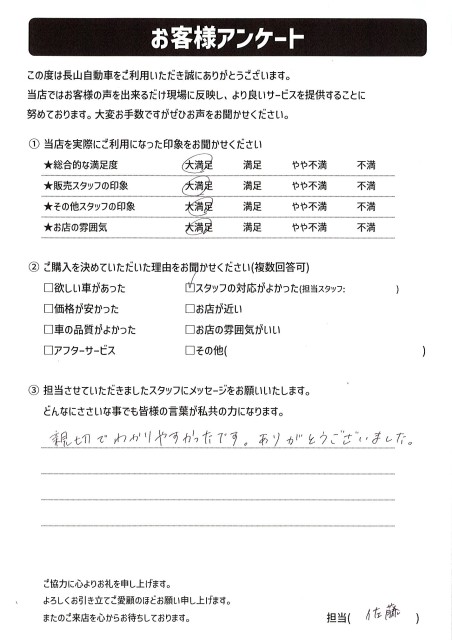 お客様アンケート
この度は長山自動車をご利用いただき誠にありがとうございます。
当店ではお客様の声を出来るだけ現場に反映し、より良いサービスを提供することに
努めております。大変お手数ですがぜひお声をお聞かせください。
① 当店を実際にご利用になった印象をお聞かせください
★総合的な満足度 大満足 満足 やや不満 不満
★販売スタッフの印象 大満足 満足 やや不満 不満
★その他スタッフの印象 大満足 満足 やや不満 不満
★お店の雰囲気 大満足 満足 やや不満 不満
② ご購入を決めていただいた理由をお聞かせください(複数回答可)
□欲しい車があった □スタッフの対応がよかった(担当スタッフ: )
□価格が安かった □お店が近い
□車の品質がよかった □お店の雰囲気がいい
□アフターサービス □その他( )
③ 担当させていただきましたスタッフにメッセージをお願いいたします。
どんなにささいな事でも皆様の言葉が私共の力になります。
親切でわかりやすかったです。ありがとうございました。
ご協力に心よりお礼を申し上げます。
よろしくお引き立てご愛顧のほどお願い申し上げます。
またのご来店を心からお待ちしております。 担当( 佐藤 )